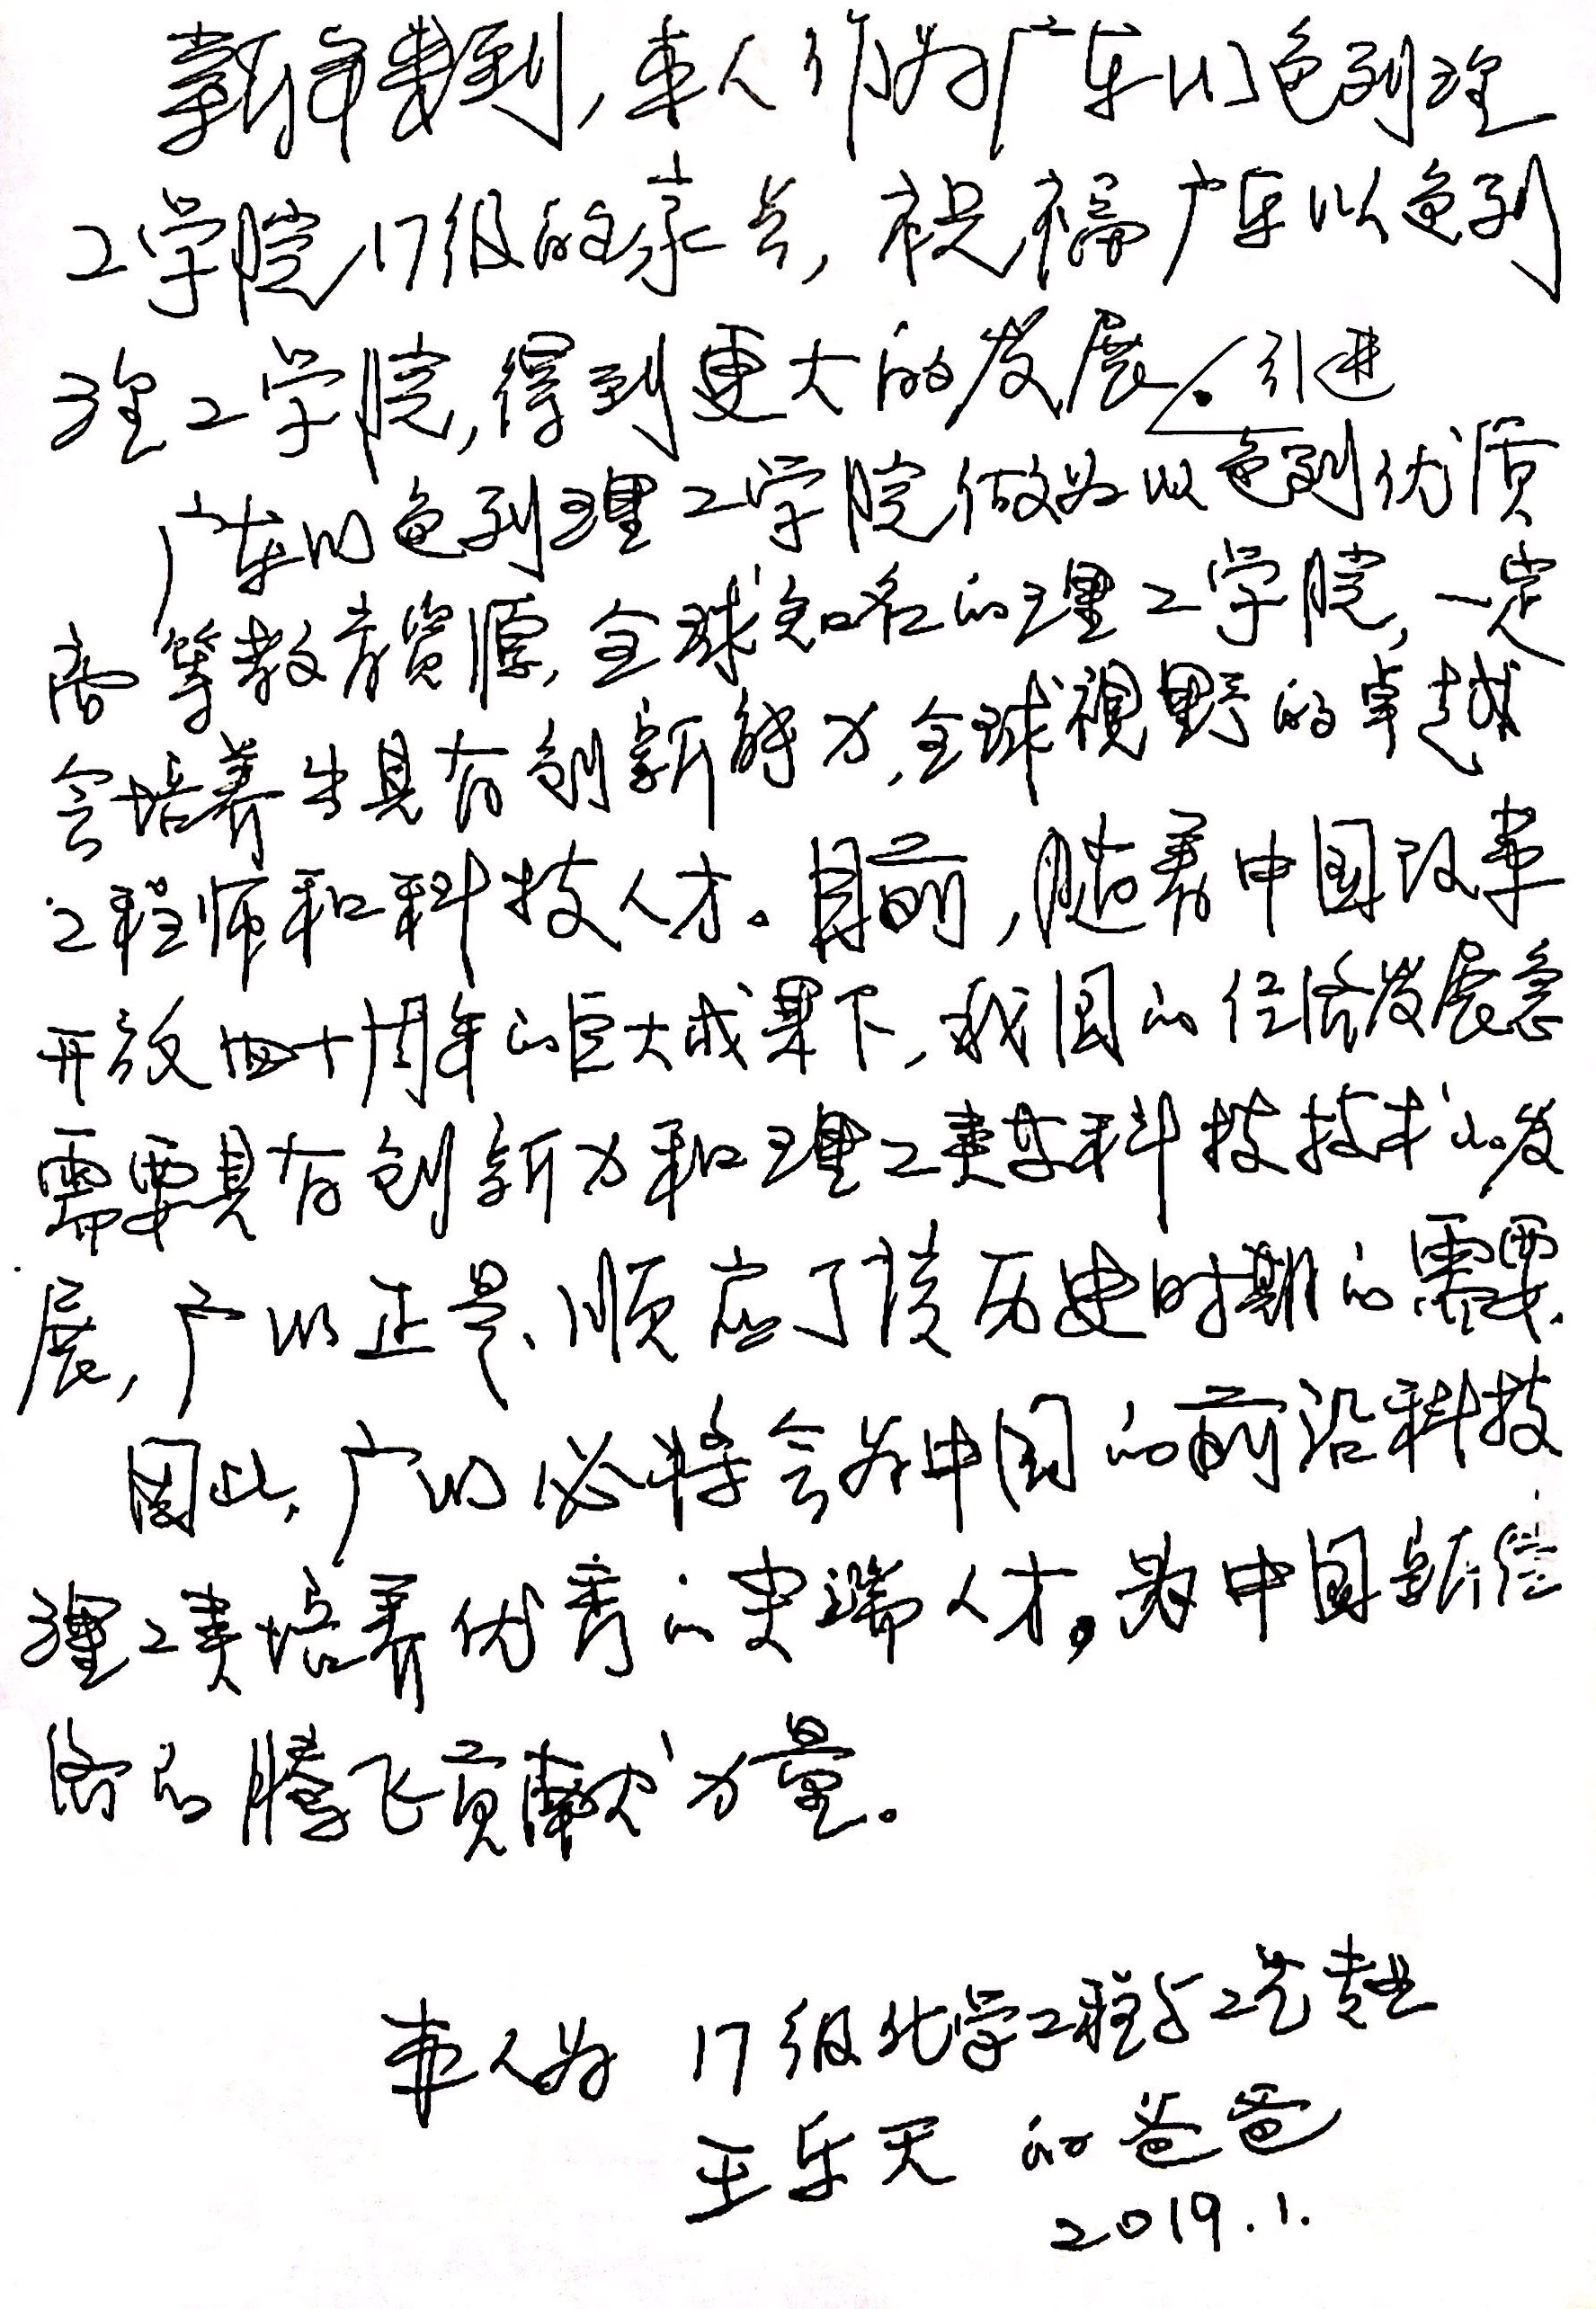 新年来到,本人作为广东以色列理
工学院17级的家长,祝福广东以色列
理工学院,得到更大的发展。
引进
广东以色列理工学院做为以色列优质
高等教育资源,全球知名的理工学院,一定
会培养出具有创新能力,全球视野的卓越
工程师和科技人才。目前,随着中国改革
开放四十周年的巨大成果下,我国的经济发展急
需要具有创新力和理工类等科技技术的发
展,广以正是顺应了该历史时期的需要.
因此,广以必将会为中国的前沿科技
理工类培养优秀的更端人才,为中国新经
济的腾飞贡献力量。
本人为 17级化学工程与工艺专业
王乐天 的爸爸
2019.1.